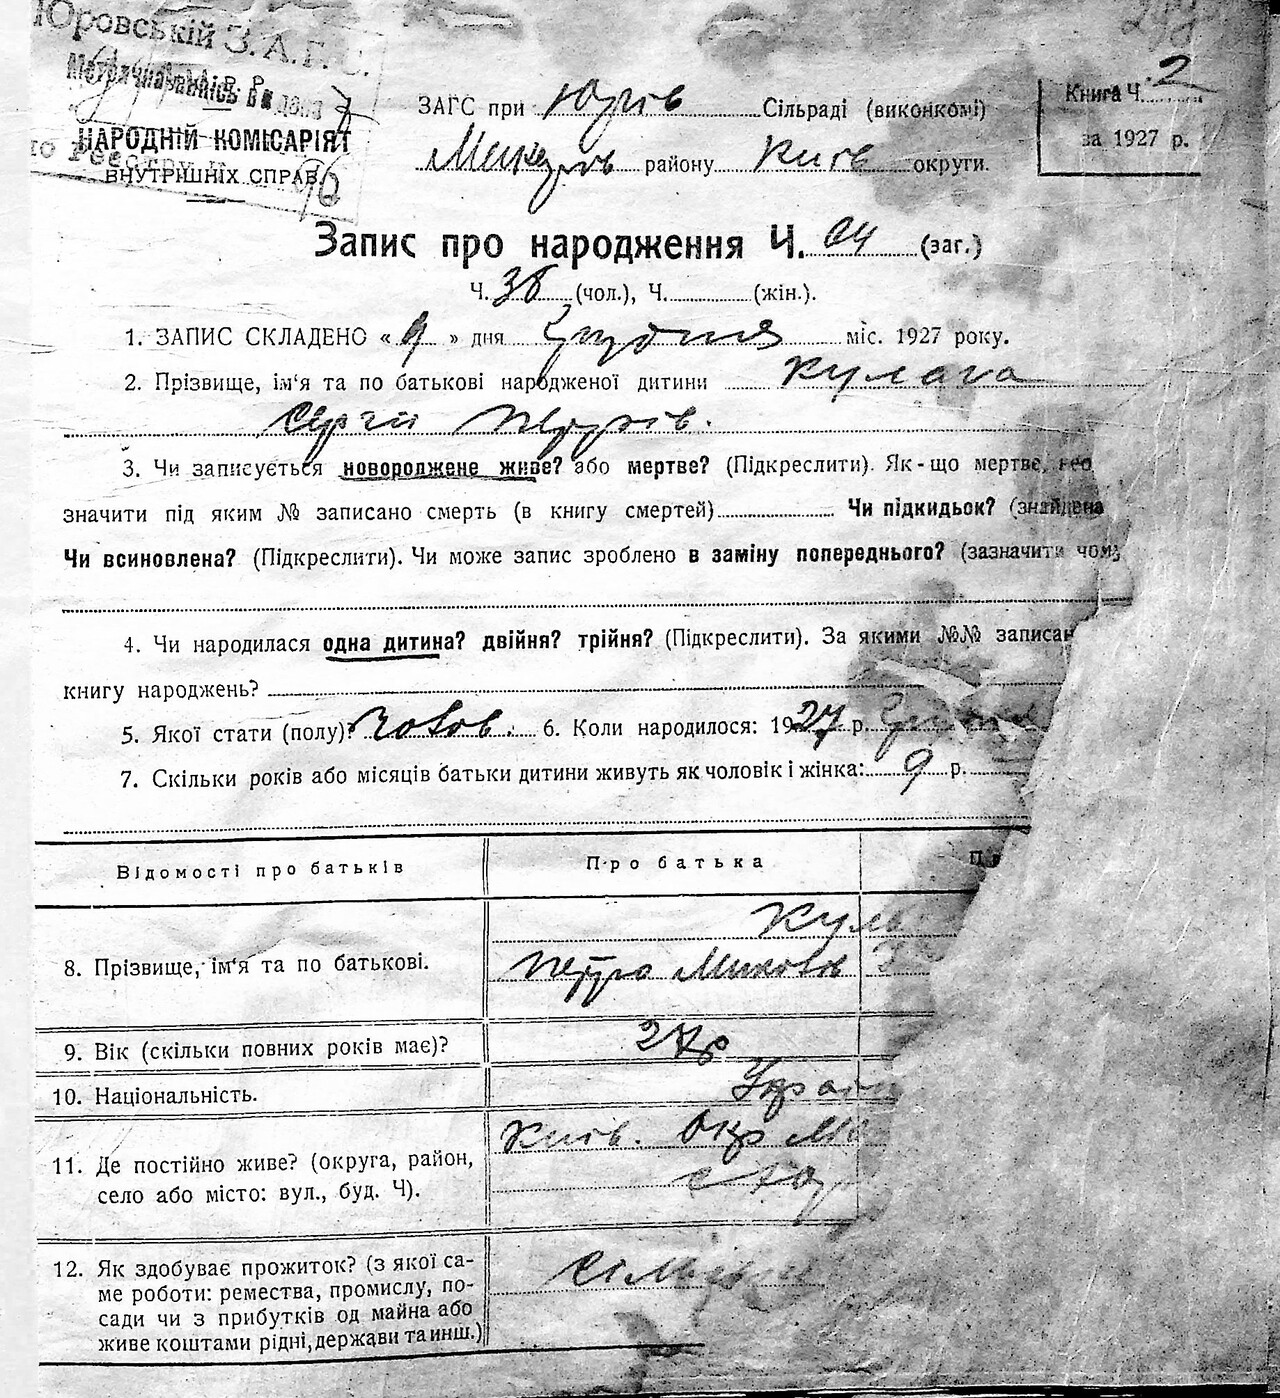 Юровській З.А.Г.С.
НАРОДНІЙ КОМІСАРІЯТ
ВНУТРІШНІХ СПРАВ
ЗАГС при Юрів Сільраді (виконкомі)
району Київ округи.
Книга Ч. 2
за 1927 р.
Запис про народження Ч. 64 (заг.)
Ч. 38 (чол.), Ч. (жін.).
1. ЗАПИС СКЛАДЕНО « 9 » дня Грудня міс. 1927 року.
2. Прізвище, ім'я та по батькові народженої дитини Кулага
Сергій Петрів.
3. Чи записується новороджене живе? або мертве? (Підкреслити). Як-що мертве,
значити під яким № записано смерть (в книгу смертей) Чи підкидьок? (знайдена
Чи всиновлена? (Підкреслити). Чи може запис зроблено в заміну попереднього? (зазначити чому
4. Чи народилася одна дитина? двійня? трійня? (Підкреслити). За якими №№ записан
книгу народжень?
5. Якої стати (полу)? Чолов. 6. Коли народилося: 1927 р. Грудня
7. Скільки років або місяців батьки дитини живуть як чоловік і жінка: 9 р.
Відомості про батьків
Про батька
8. Прізвище, ім'я та по батькові.
Кула
Петро Миколов
9. Вік (скільки повних років має)?
27 р
10. Національність.
Украї
11. Де постійно живе? (округа, район,
село або місто: вул., буд. Ч).
Київ. Окр Ма
12. Як здобуває прожиток? (з якої са-
ме роботи: ремества, промислу, по-
сади чи з прибутків од майна або
живе коштами рідні, держави та инш.)